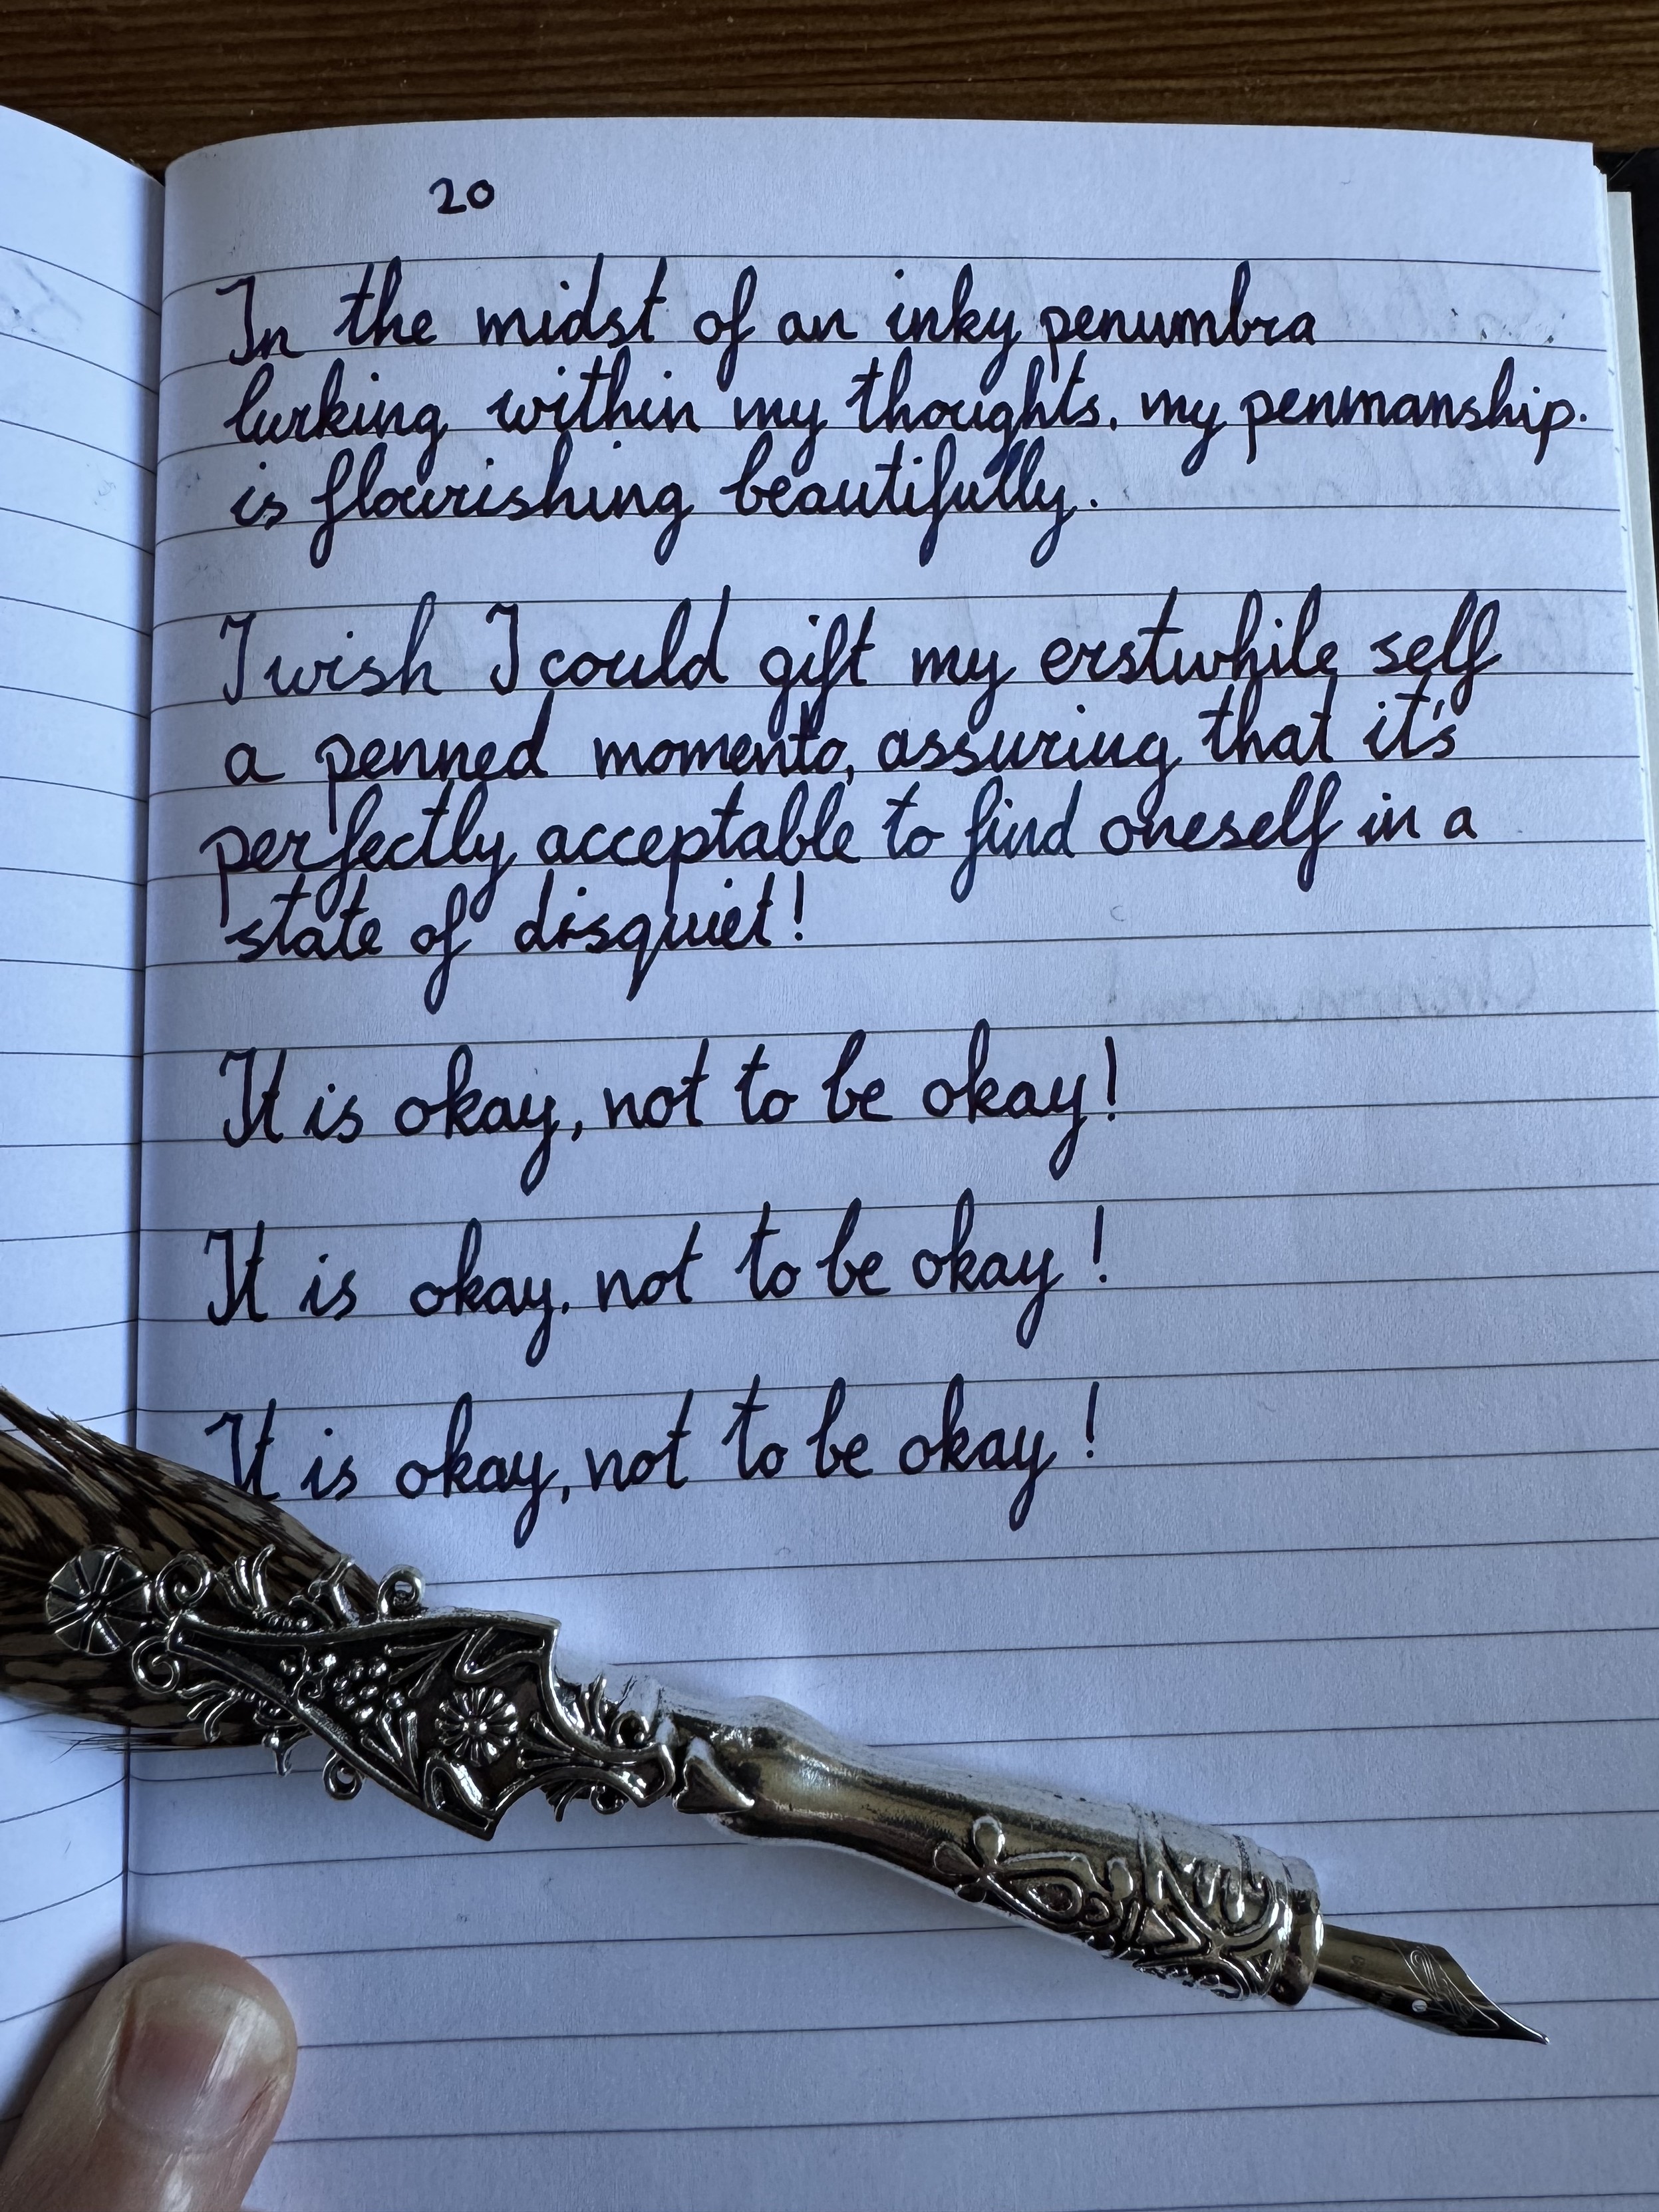 20
In the midst of an inky penumbra
lurking within my thoughts, my penmanship.
is flourishing beautifully.
I wish I could gift my erstwhile self
a penned momento, assuring that it's
perfectly acceptable to find oneself in a
state of disquiet!
It is okay, not to be okay!
It is okay, not to be okay!
It is okay, not to be okay!